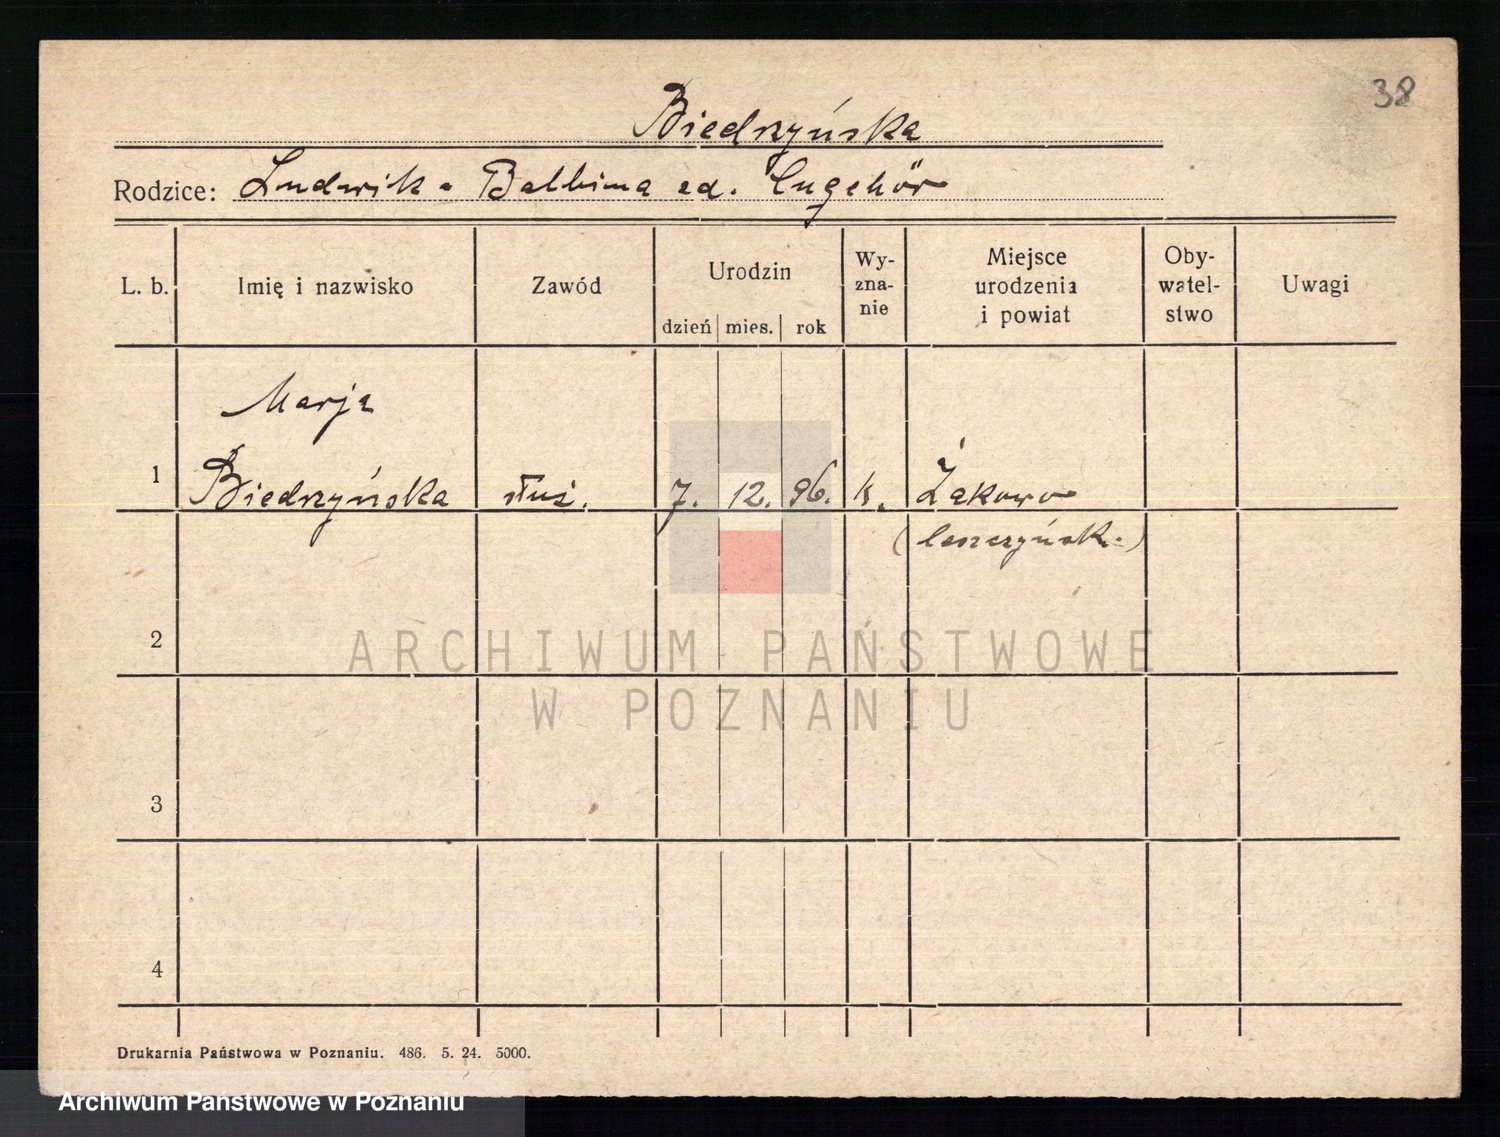 38
Biedrzyńska
Rodzice: Ludwik - Balbina zd.
L. b. Imię i nazwisko Zawód Urodzin dzień mies. rok Wy-zna-nie Miejsce urodzenia i powiat Oby-watel-stwo Uwagi
Marja
1 Biedrzyńska służ. 7. 12. 96. k. Żakowo
(leszczyńsk.)
2
ARCHIWUM PAŃSTWOWE
W POZNANIU
3
4
Drukarnia Państwowa w Poznaniu. 486. 5. 24. 5000.
Archiwum Państwowe w Poznaniu